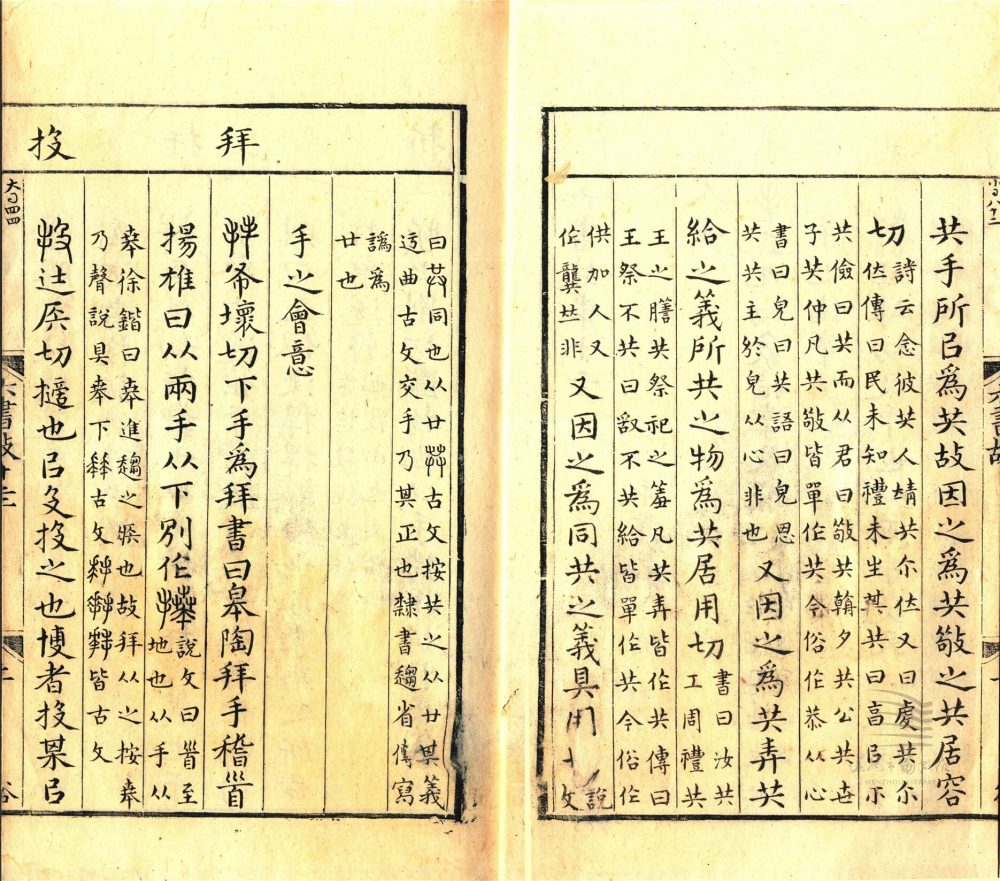 共手所㠯爲共故因之爲共敬之共居容
切詩云念彼共人靖共尒位又曰虔共尒
位左傳曰民未知禮未生其共曰亯㠯示
共儉曰共而从君曰敬共朝夕共公共世
子共仲凡共敬皆單作共今俗作恭从心
書曰皃曰共語曰皃思
共共主於皃从心非也又因之爲共弄共
給之義所共之物爲共居用切書曰汝共
工周禮共
王之膳共祭祀之羞凡共弄皆作共傳曰
王祭不共曰敢不共給皆單作共今俗作
供加人又
作龔𠀤非又因之爲同共之義具用切說
文
曰共同也从廿廾古文按共之从廿其義
迂曲古文交手乃其正也隸書趨省傳寫
譌爲
廿也
手之會意
拜
𢫶布壞切下手爲拜書曰皋陶拜手稽首
揚雄曰从兩手从下別作𢷎說文曰首至
地也从手从
𠦪徐鍇曰𠦪進趨之疾也故拜从之按𠦪
乃聲說具𠦪下古文皆古文
投
投辻矦切擿也㠯殳投之也博者投某㠯
六書故
六書故